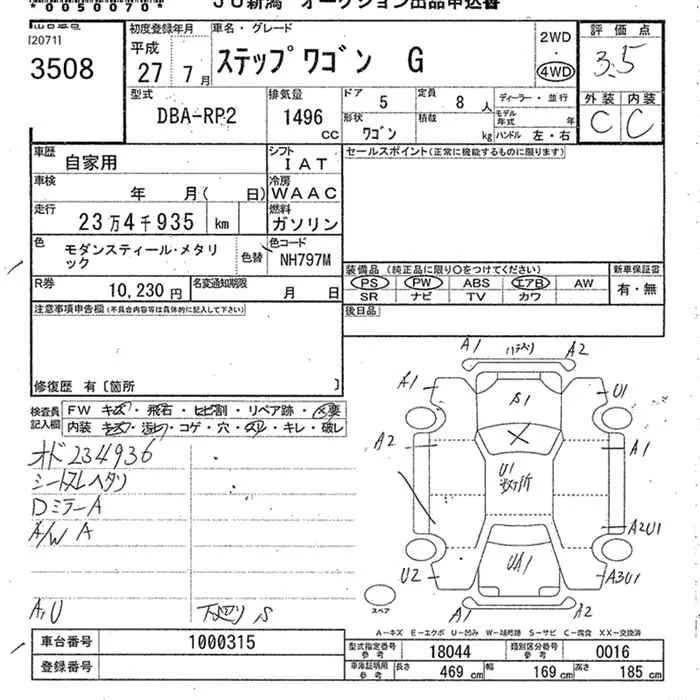 * 0050070 *
JU新潟 オークション出品申込書
120711
3508
初度登録年月
平成
27年 7月
車名・グレード
ステップワゴン G
2WD
・
4WD
評価点
3.5
型式
DBA-RP2
排気量
1496
cc
ドア
5
定員
8 人
形状
ワゴン
積載
kg
ディーラー・並行
モデル
年式
年
ハンドル 左・右
外装
内装
C
C
車歴
自家用
シフト
IAT
車検
年 月( 日)
冷房
WAAC
走行
23万4千935 km
燃料
ガソリン
色
モダンスティール・メタリ
ック
色替
色コード
NH797M
R券
10,230 円
名変通知期限
月 日
セールスポイント(正常に機能するものに限ります)
装備品 (純正品に限り○をつけてください)
PS PW ABS エアB AW
SR ナビ TV カワ
新車保証書
有・無
後日品
注意事項申告欄(不具合内容等は具体的に記入して下さい)
修復歴 有〔箇所 〕
検査員
記入欄
FW キズ・飛石・ヒビ割・リペア跡・交要
内装 キズ・汚レ・コゲ・穴・スレ・キレ・破レ
オド234936
シートスレヘタリ
DミラーA
A/W A
A,U
下廻り S
A1
A2
A1
S1
U1
A2
A1
U1
数ヶ所
A2U1
U2
UA1
A3U1
A1
A2
スペア
A―キズ E―エクボ U―凹み W―補修跡 S―サビ C―腐食 XX―交換済
車台番号
1000315
登録番号
型式指定番号
参考
18044
類別区分番号
参考
0016
車庫証明用
参考
長さ
469 cm
幅
169 cm
高さ
185 cm